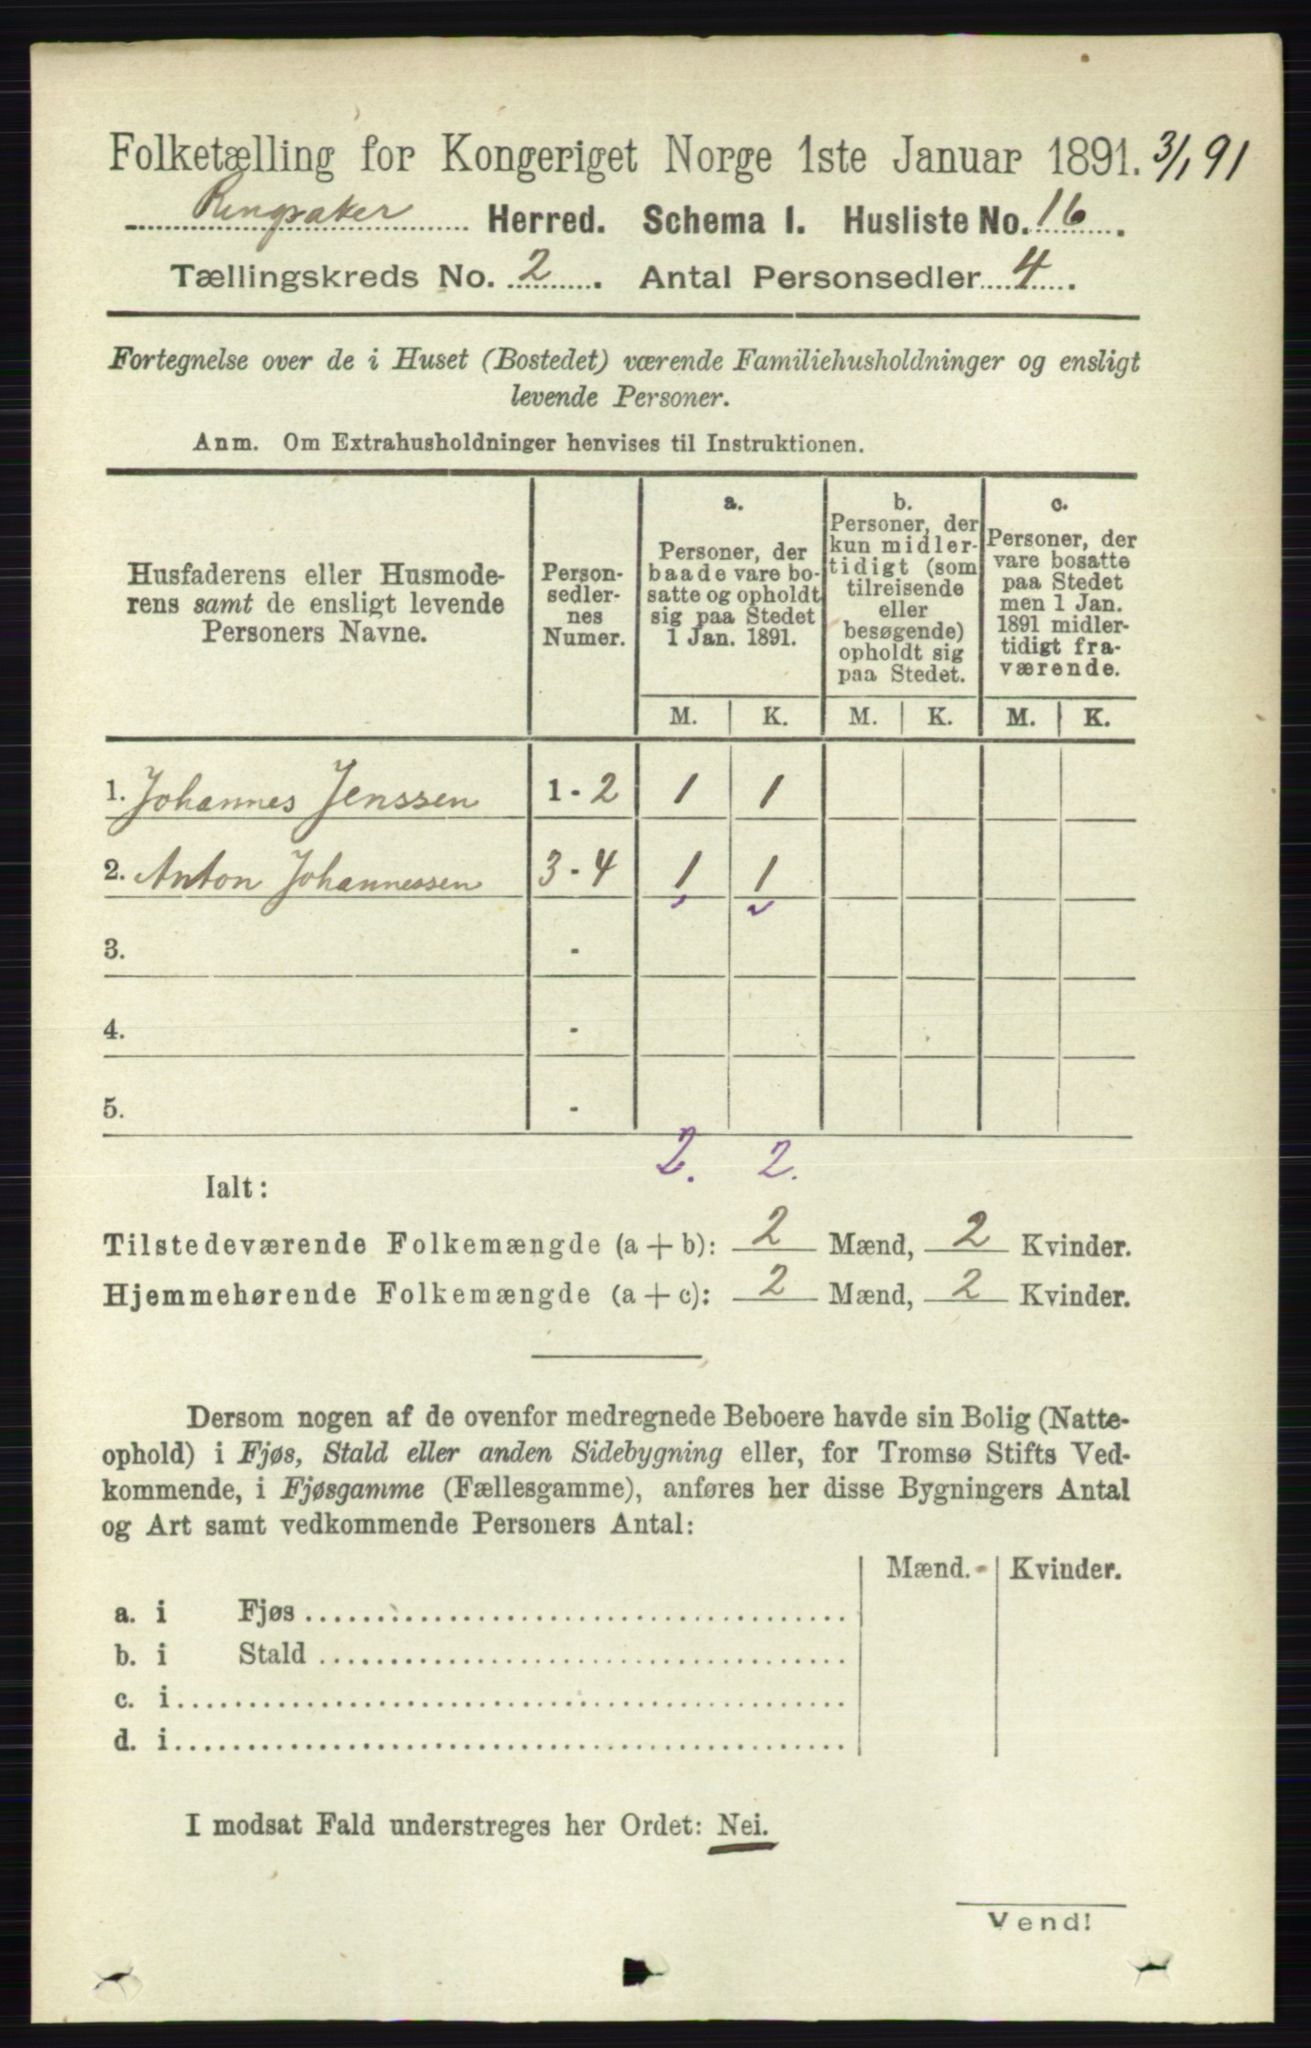 Folketælling for Kongeriget Norge 1ste Januar 1891. 3/1 91
Ringsaker Herred. Schema 1. Husliste No. 16.
Tællingskreds No. 2. Antal Personsedler 4.
Fortegnelse over de i Huset (Bostedet) værende Familiehusholdninger og ensligt
levende Personer.
Anm. Om Extrahusholdninger henvises til Instruktionen.
Husfaderens eller Husmode-
rens samt de ensligt levende
Personers Navne.
Person-
sedler-
nes
Numer.
a.
Personer, der
baade vare bo-
satte og opholdt
sig paa Stedet
1 Jan. 1891.
b.
Personer, der
kun midler-
tidigt (som
tilreisende
eller
besøgende)
opholdt sig
paa Stedet.
c.
Personer, der
vare bosatte
paa Stedet
men 1 Jan.
1891 midler-
tidigt fra-
værende.
M. K. M. K. M. K.
1. Johannes Jenssen 1 - 2 1 1
2. Anton Johannessen 3 - 4 1 1
3. -
4. -
5. -
2. 2.
Ialt:
Tilstedeværende Folkemængde (a + b): 2 Mænd, 2 Kvinder.
Hjemmehørende Folkemængde (a + c): 2 Mænd, 2 Kvinder.
Dersom nogen af de ovenfor medregnede Beboere havde sin Bolig (Natte-
ophold) i Fjøs, Stald eller anden Sidebygning eller, for Tromsø Stifts Ved-
kommende, i Fjøsgamme (Fællesgamme), anføres her disse Bygningers Antal
og Art samt vedkommende Personers Antal:
Mænd. Kvinder.
a. i Fjøs
b. i Stald
c. i
d. i
I modsat Fald understreges her Ordet: Nei.
Vend!